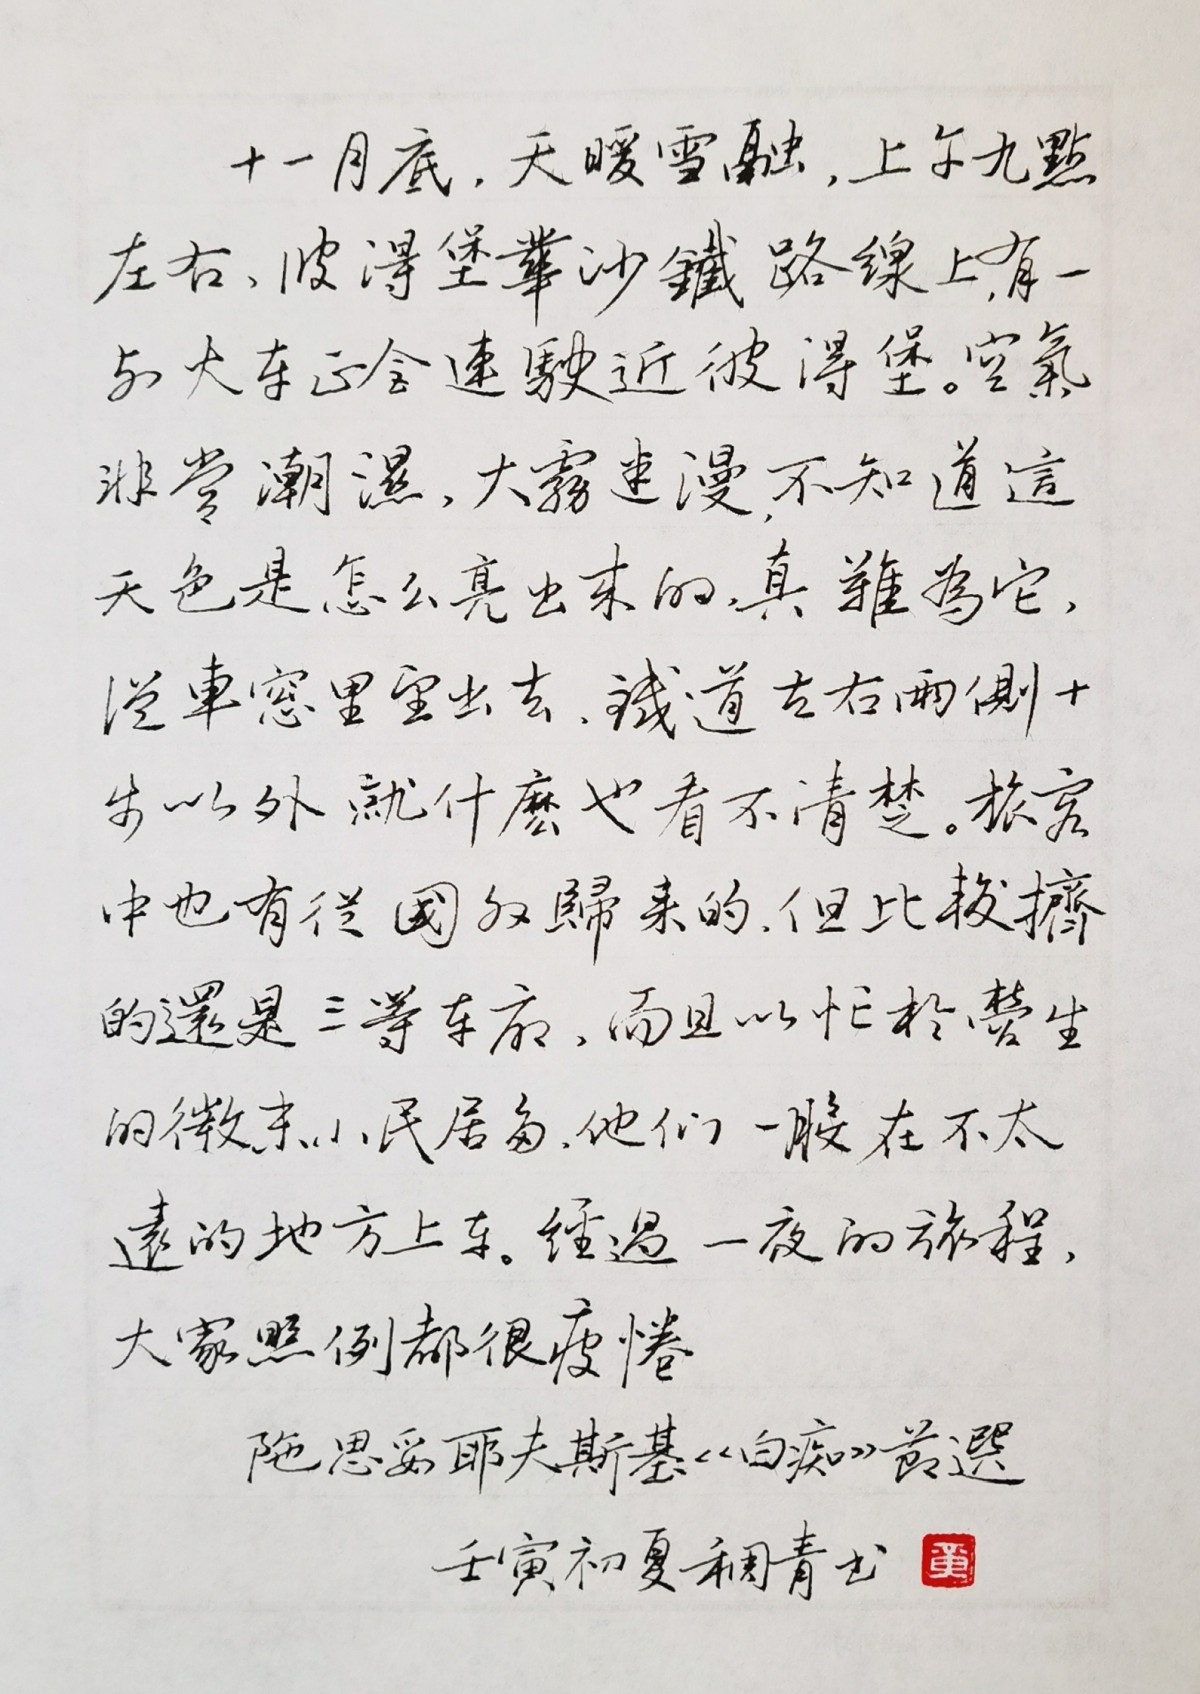 十一月底，天暖雪融，上午九點
左右、彼得堡華沙鐵路線上，有一
列火车正全速駛近彼得堡。空氣
非常潮濕，大霧迷漫，不知道這
天色是怎么亮出来的，真難為它，
從車窓里望出去，鐵道左右兩側十
步以外就什麽也看不清楚。旅客
中也有從國外歸来的，但比較擠
的還是三等车廂，而且以忙於營生
的微末小民居多，他们一般在不太
遠的地方上车。經過一夜的旅程，
大家照例都很疲惓
陀思妥耶夫斯基《白痴》節選
壬寅初夏稠青书